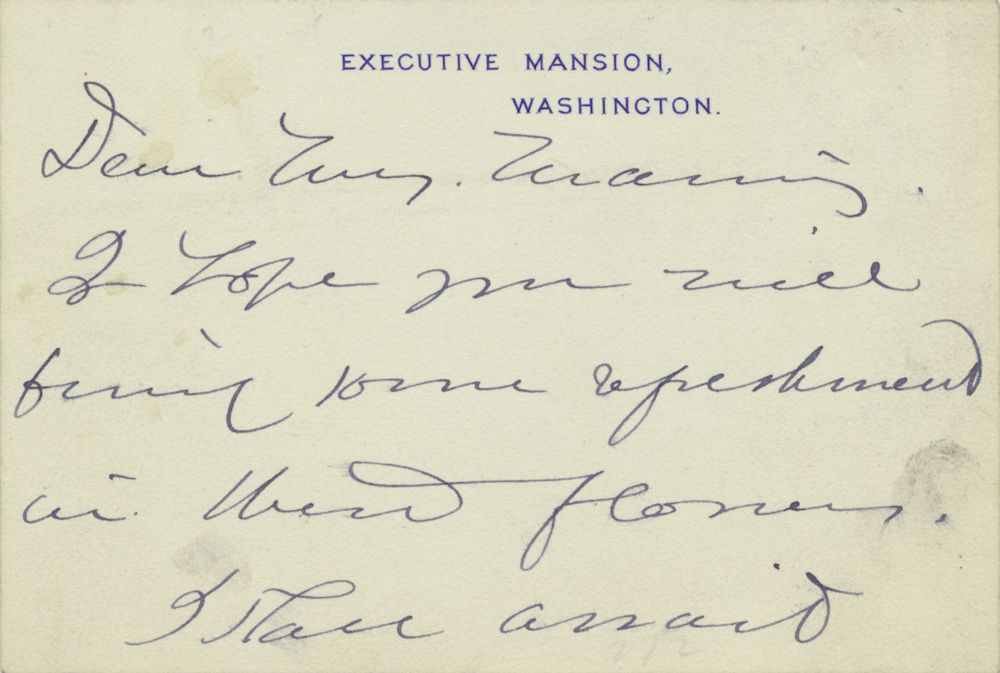 EXECUTIVE MANSION,
WASHINGTON.
Dear Mrs. Manning.
I hope you will
some refreshment
in flowers.
I shall await